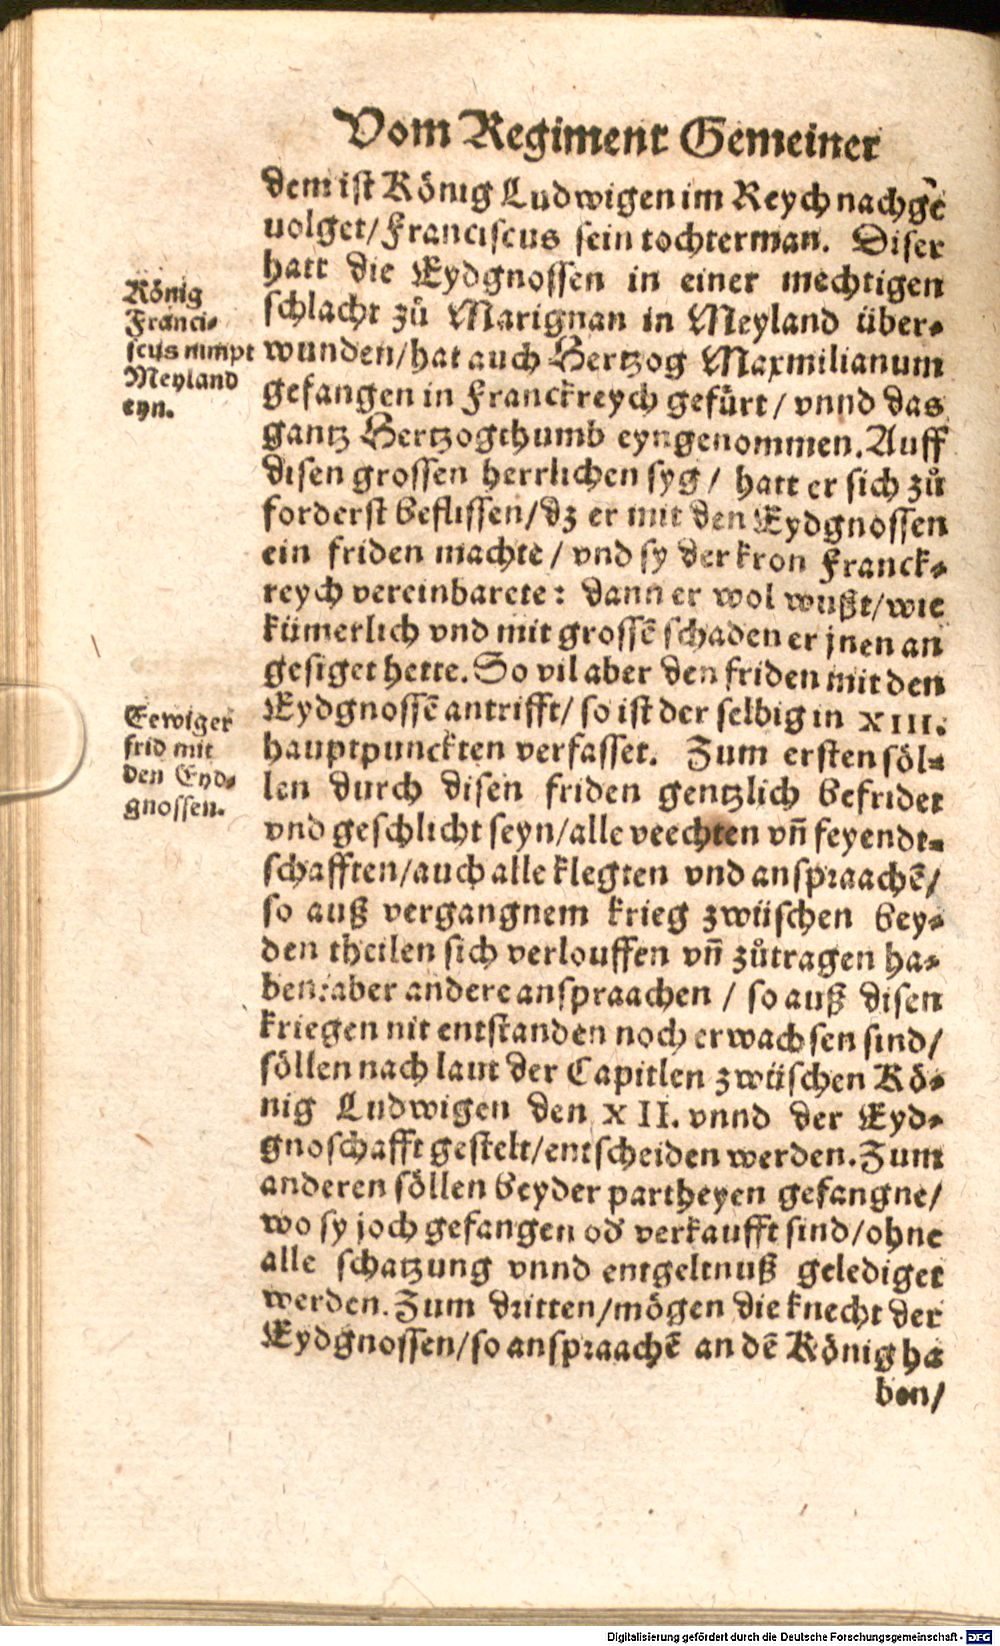 Vom Regiment Gemeiner
dem ist König Ludwigen im Reych nachgē
uolget/Franciscus sein tochterman. Diser
hatt die Eydgnossen in einer mechtigen
schlacht zů Marignan in Meyland über-
wunden/hat auch Hertzog Maxmilianum
gefangen in Franckreych gefürt/vnnd das
gantz Hertzogthumb eyngenommen. Auff
disen grossen herrlichen syg/ hatt er sich zů
forderst beflissen/dz er mit den Eydgnossen
ein friden machte/vnd sy der kron Franck-
reych vereinbarete: dann er wol wußt/wie
kümerlich vnd mit grossē schaden er jnen an
gesiget hette. So vil aber den friden mit den
Eydgnossē antrifft/so ist der selbig in XIII.
hauptpunckten verfasset. Zum ersten söl-
len durch disen friden gentzlich befridet
vnd geschlicht seyn/alle veechten vñ feyendt-
schafften/auch alle klegten vnd anspraachē/
so auß vergangnem krieg zwüschen bey-
den theilen sich verlouffen vñ zůtragen ha-
ben: aber andere anspraachen/so auß disen
kriegen nit entstanden noch erwachsen sind/
söllen nach laut der Capitlen zwüschen Kö-
nig Ludwigen den XII. vnnd der Eyd-
gnoschafft gestelt/entscheiden werden. Zum
anderen söllen beyder partheyen gefangne/
wo sy joch gefangen od' verkaufft sind/ohne
alle schatzung vnnd entgeltnuß gelediget
werden. Zum dritten/mögen die knecht der
Eydgnossen/so anspraachē an dē König ha
ben/
König
Franci-
scus nimpt
Meyland
eyn.
Eewiger
frid mit
den Eyd-
gnossen.
Digitalisierung gefördert durch die Deutsche Forschungsgemeinschaft - DFG